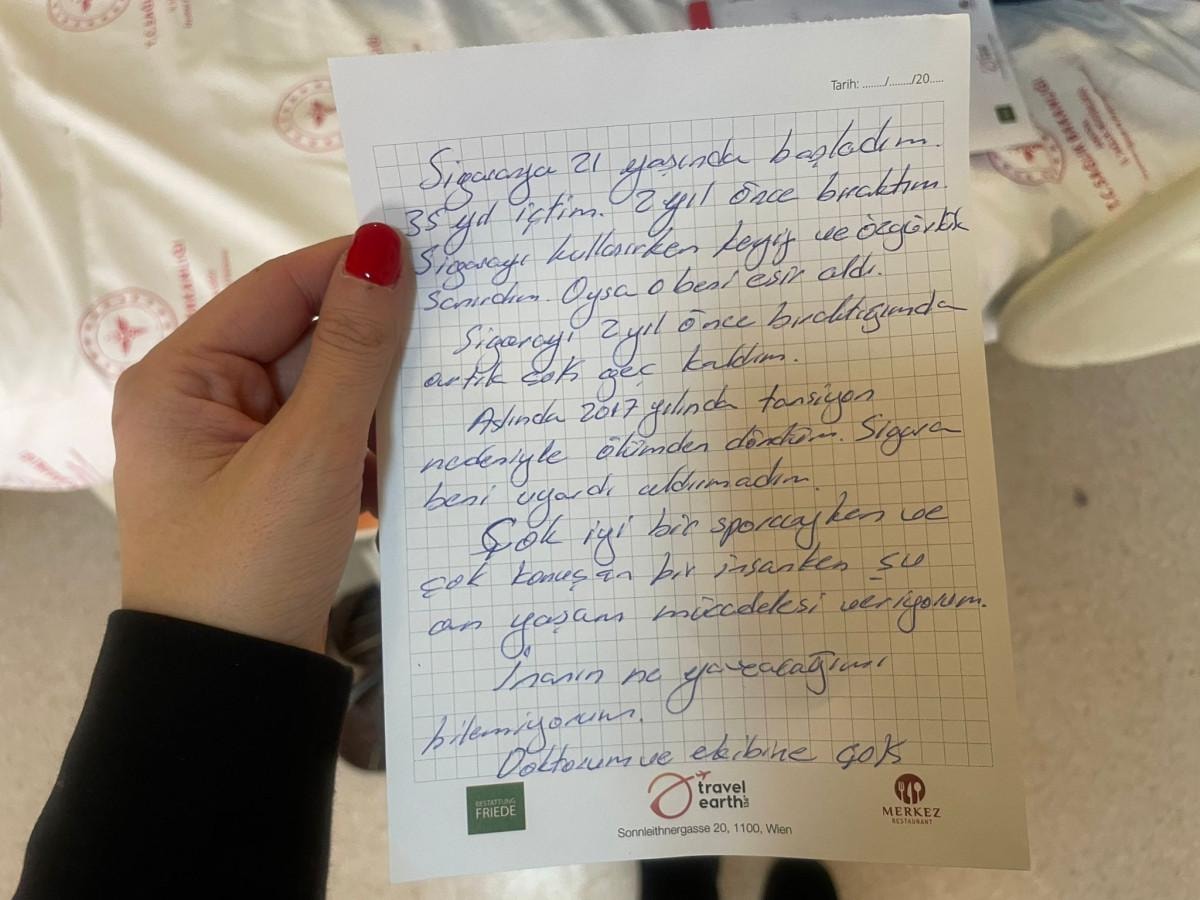 Tarih: ......../......../20.....
Sigaraya 21 yaşında başladım.
35 yıl içtim. 2 yıl önce bıraktım.
Sigarayı kullanırken keyif ve özgürlük
sanırdım. Oysa o beni esir aldı.
Sigarayı 2 yıl önce bıraktığımda
artık çok geç kaldım.
Aslında 2017 yılında tansiyon
nedeniyle ölümden döndüm. Sigara
beni uyardı aldırmadım.
Çok iyi bir sporcuyken ve
çok konuşan bir insanken şu
an yaşam mücadelesi veriyorum.
İnanın ne yazacağımı
bilemiyorum.
Doktorum ve ekibine çok
BESTATTUNG
FRIEDE
travel
earth
MERKEZ
RESTAURANT
Sonnleithnergasse 20, 1100, Wien
T.C. SAĞLIK BAKANLIĞI